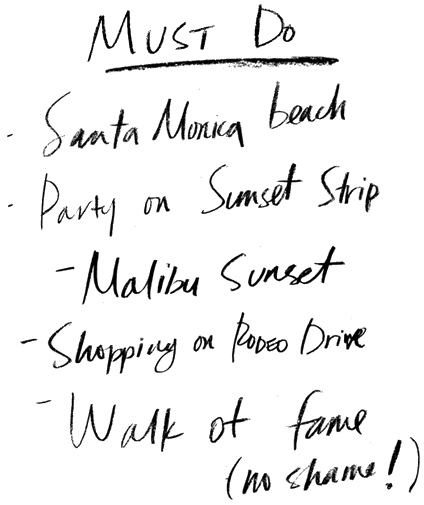 MUST DO
- Santa Monica beach
- Party on Sunset Strip
- Malibu Sunset
- Shopping on RODEO Drive
- Walk of fame
(no shame!)